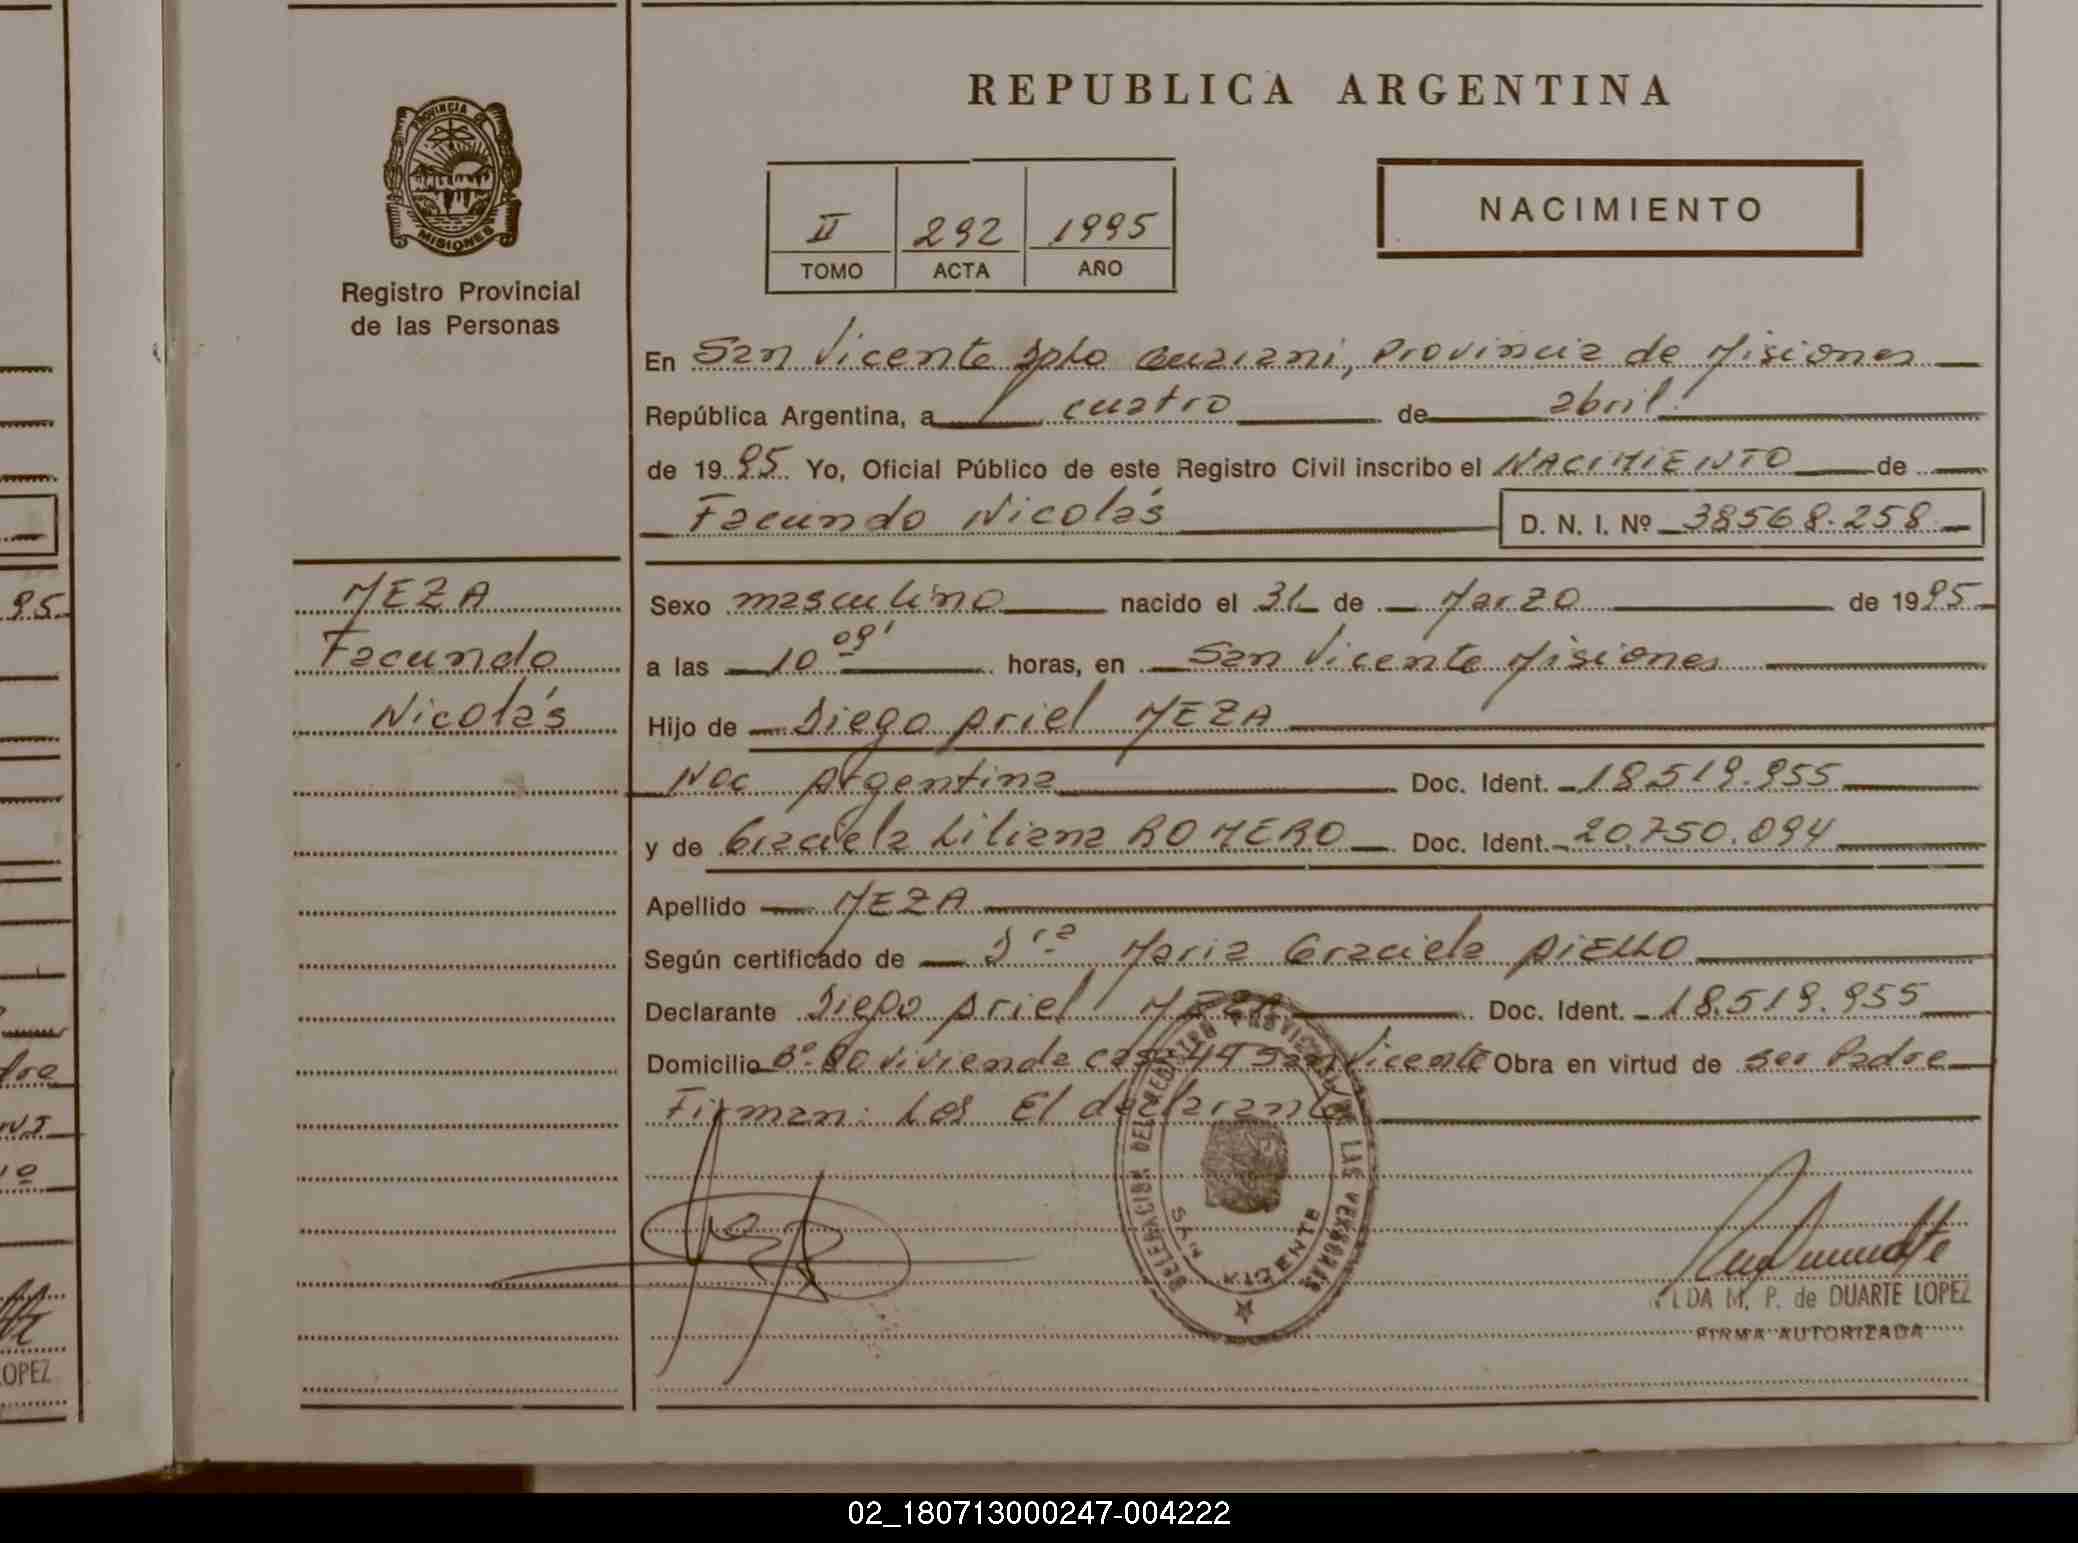 REPUBLICA ARGENTINA
PROVINCIA DE
MISIONES
Registro Provincial
de las Personas
II 292 1995
TOMO ACTA AÑO
NACIMIENTO
En San Vicente Dpto Guarani, Provincia de Misiones
República Argentina, a cuatro de abril
de 1995 Yo, Oficial Público de este Registro Civil inscribo el NACIMIENTO de
Facundo Nicolás D. N. I. Nº 38568.258
MEZA
Facundo
Nicolás
Sexo masculino nacido el 31 de Marzo de 1995
a las 10 09' horas, en San Vicente Misiones
Hijo de Diego Ariel MEZA
Nac Argentina Doc. Ident. 18.519.955
y de Graciela Liliana ROMERO Doc. Ident. 20.750.094
Apellido MEZA
Según certificado de Dra Maria Graciela AIELLO
Declarante Diego Ariel MEZA Doc. Ident. 18.519.955
Domicilio Bº 80 vivienda casa 44 San Vicente Obra en virtud de ser Padre
Firman: Los El declarante
DELEGACION DEL REGISTRO PROVINCIAL DE LAS PERSONAS
SAN VICENTE
M. P. de DUARTE LOPEZ
FIRMA AUTORIZADA
95
dre
OPEZ
02_180713000247-004222